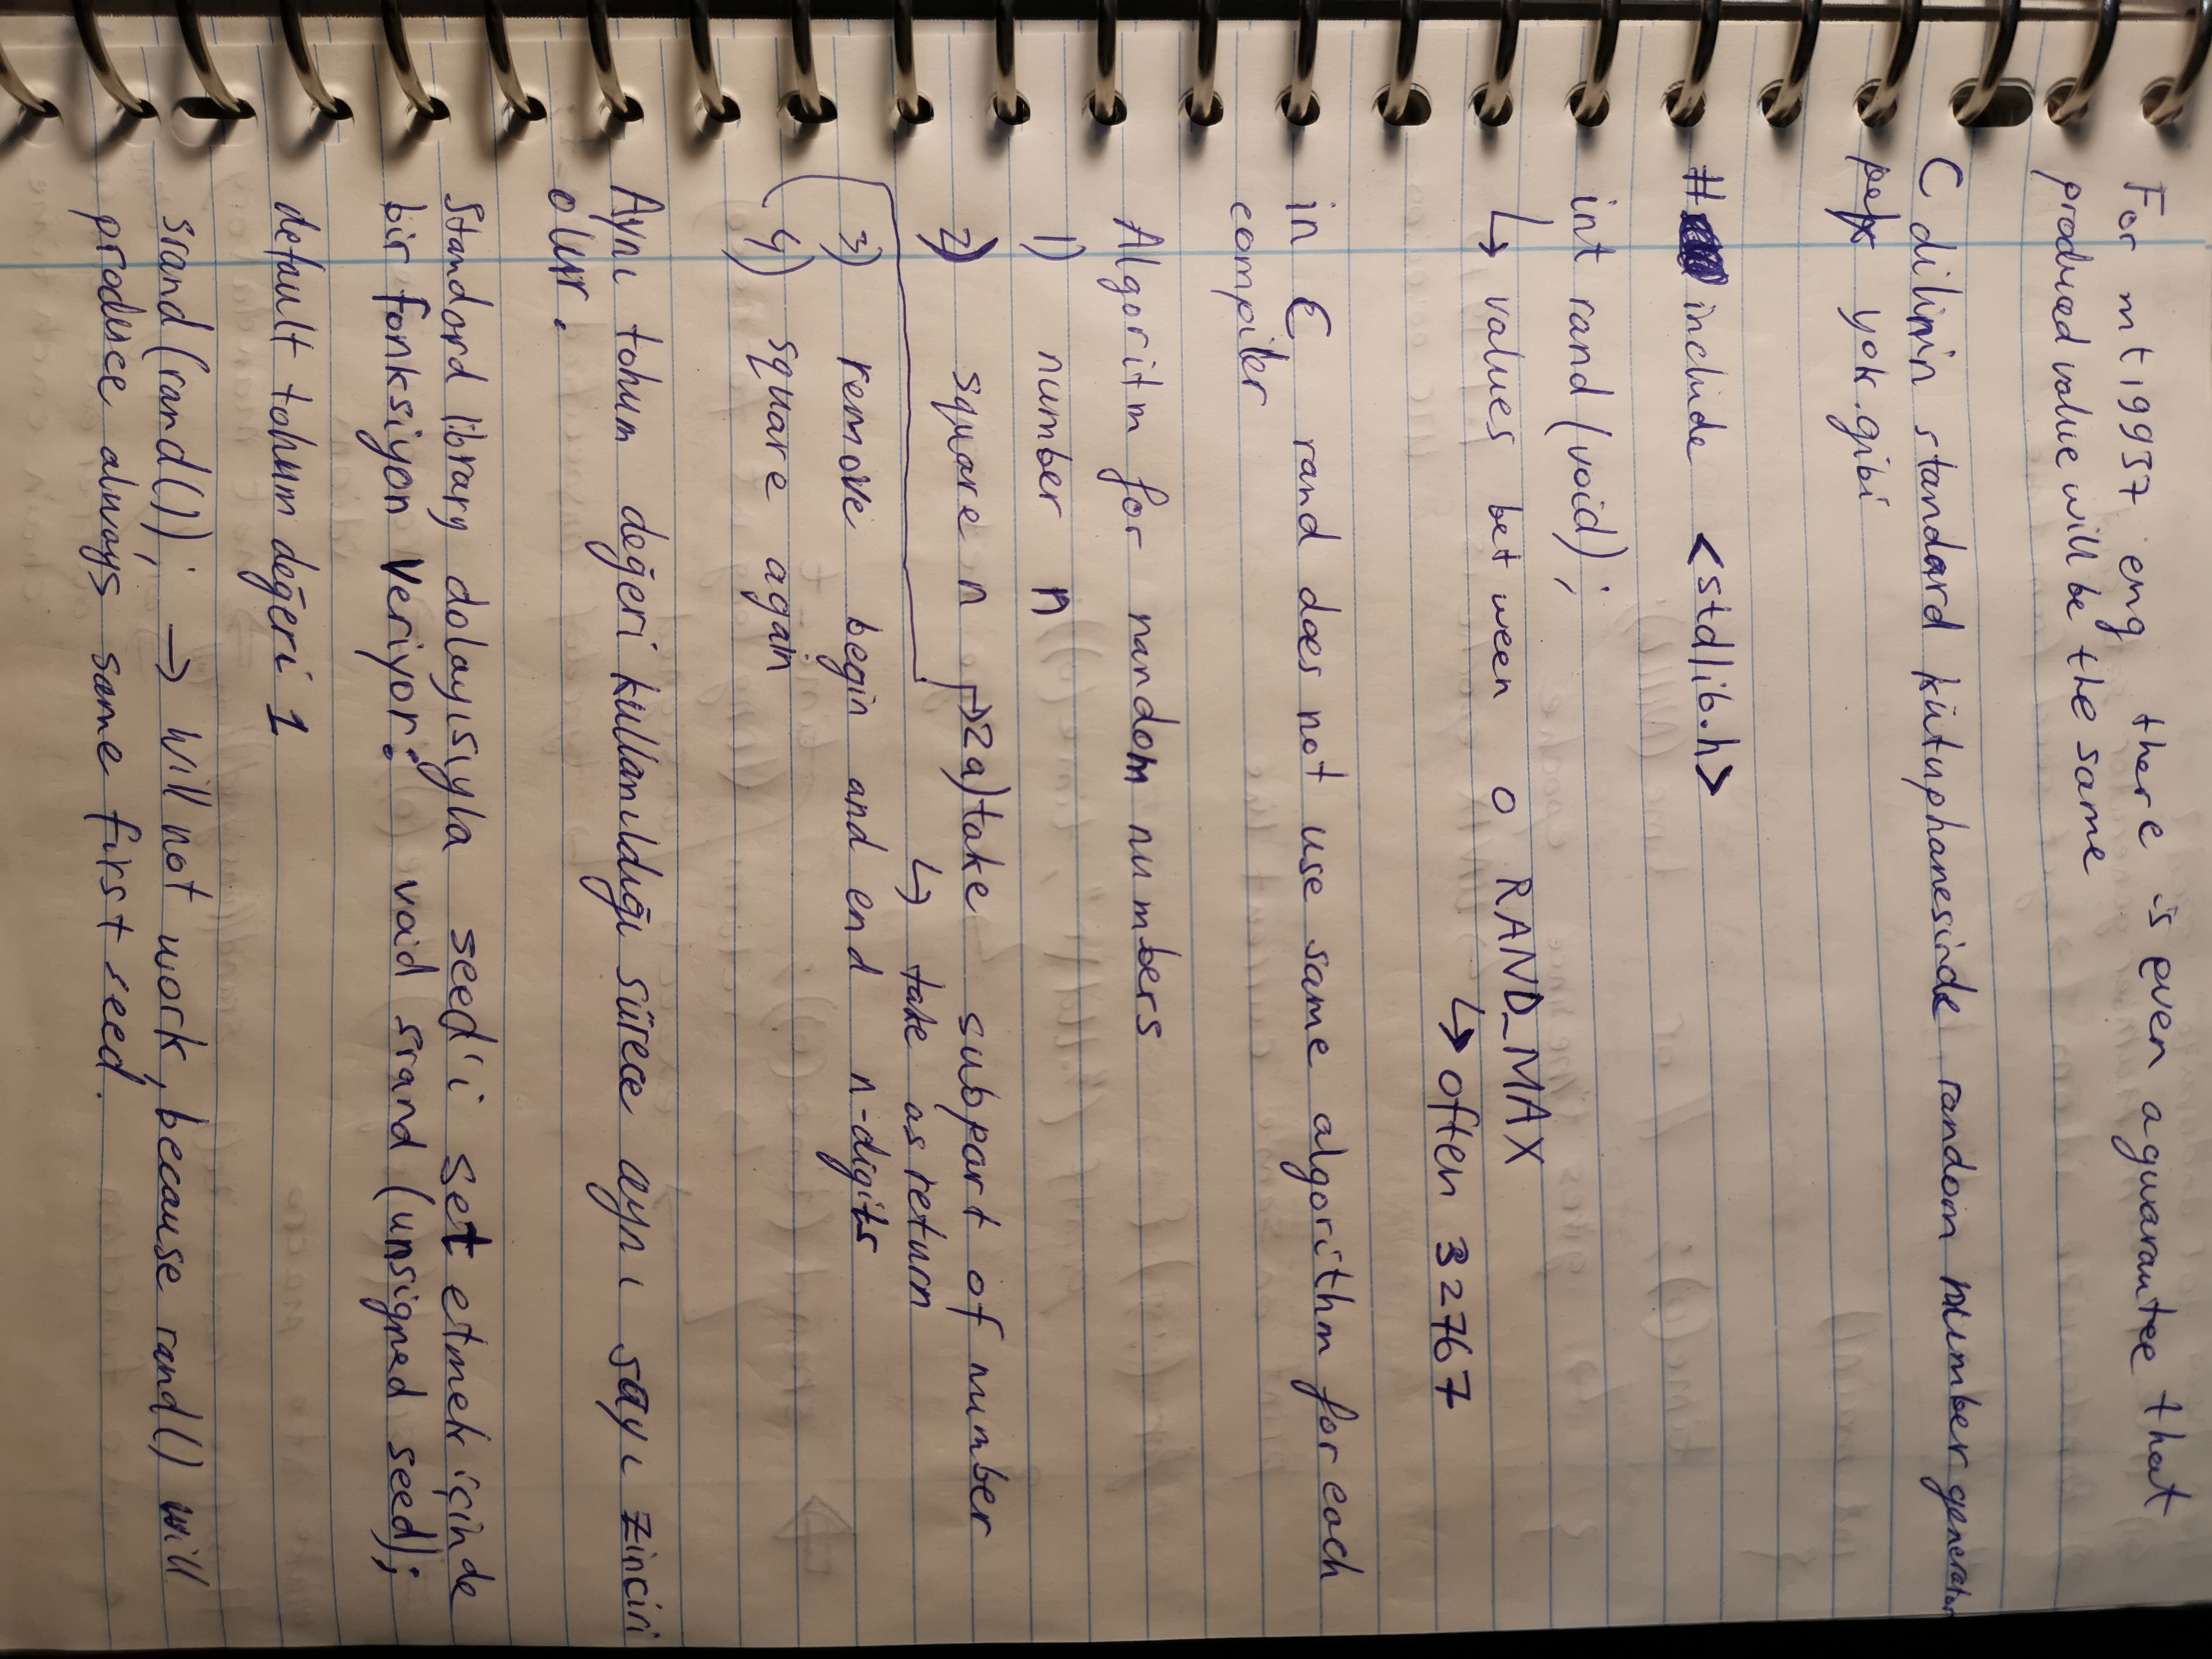 For mt19937 eng there is even a guarantee that
produced value will be the same
C dilinin standard kütuphanesinde random number generator
yok.gibi
# include <stdlib.h>
int rand (void);
↳ values between 0 RAND_MAX
↳ often 32767
in C, rand does not use same algorithm for each
compiler
Algoritm for random numbers
1) number n
2) square n → 2a) take subpart of number
↳ take as return
3) remove begin and end n-digits
4) square again
Aynı tohum değeri kullanıldığı sürece aynı sayı zinciri
olur.
Standard library dolayısıyla seed'i set etmek içinde
bir fonksiyon veriyor: void srand (unsigned seed);
default tohum değeri 1
srand (rand()); → will not work, because rand() will
produce always same first seed.